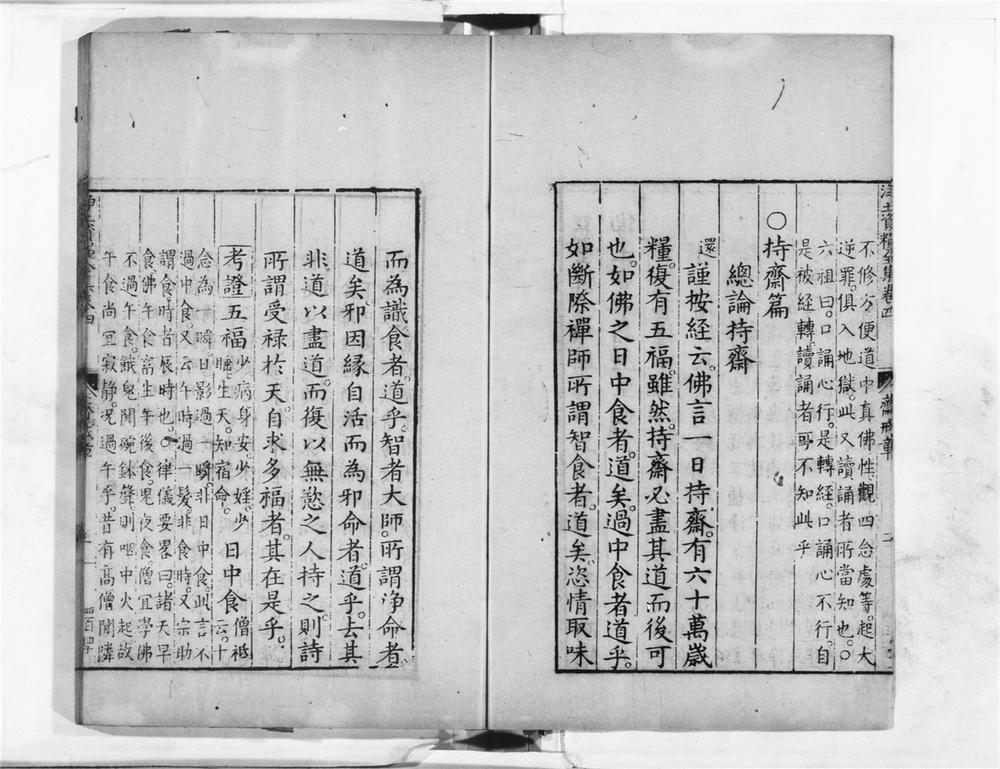 淨土資糧全集卷四
齋戒章
不修方便道中真佛性觀四念處等起大
逆罪俱入地獄此又讀誦者所當知也○
六祖曰口誦心行是轉經口誦心不行自
是被經轉讀誦者可不知此乎
○持齋篇
總論持齋
還謹按經云佛言一日持齋有六十萬歲
糧復有五福雖然持齋必盡其道而後可
也如佛之日中食者道矣過中食者道乎
如斷際禪師所謂智食者道矣恣情取味
而為識食者道乎智者大師所謂淨命者
道矣邪因緣自活而為邪命者道乎去其
非道以盡道而復以無慾之人持之則詩
所謂受祿於天自求多福者其在是乎
考證五福少病身安少婬少
睡生天知宿命日中食僧祇
云十
念為一瞬日影過一瞬非日中食此言不
過中食又云午時過一髮非食時又宗助
謂食時者辰時也○律儀要畧曰諸天早
食佛午食畜生午後食鬼夜食僧宜學佛
不過午食餓鬼聞碗鉢聲則咽中火起故
午食尚宜寂靜況過午乎昔有高僧聞隣